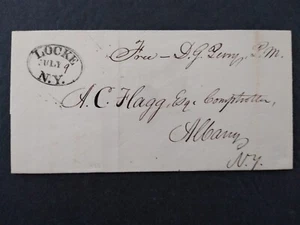 LOCKE
JULY 4
N.Y.
Free – D.G. Perry, P.M.
A. C. Flagg, Esq. Comptroller,
Albany
N.Y.